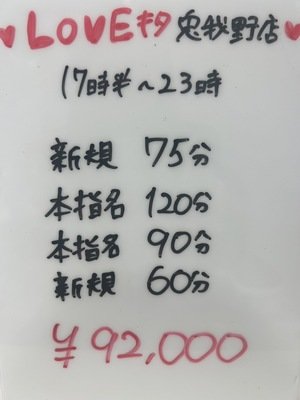 ♥LOVEキタ 兎我野店♥
17時半~23時
新規 75分
本指名 120分
本指名 90分
新規 60分
¥92,000